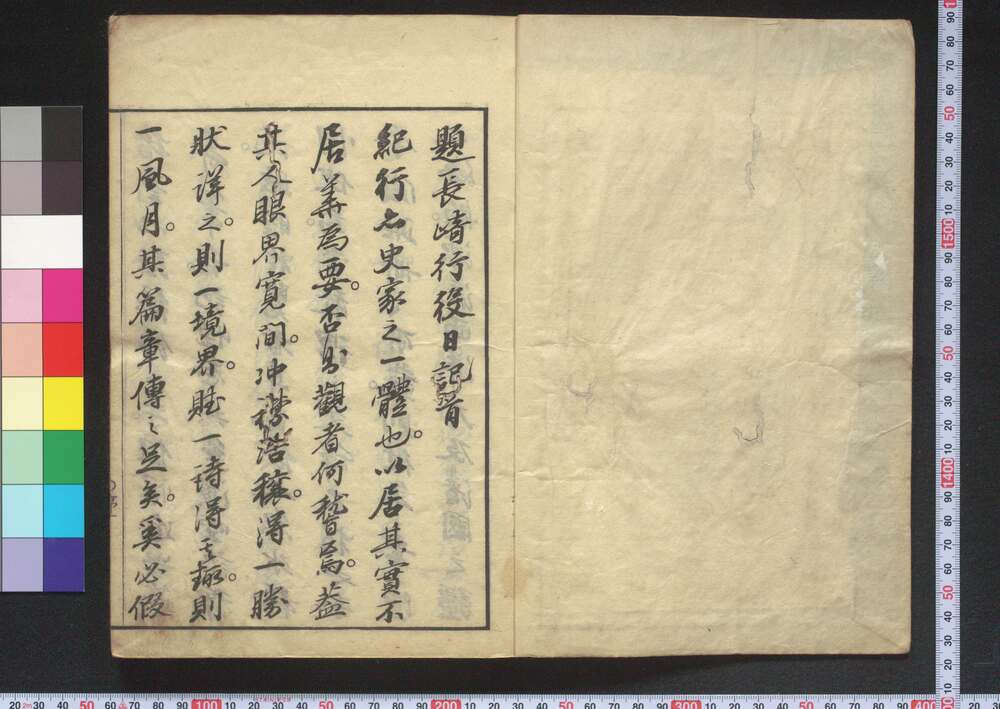 題長崎行役日記首
紀行亦史家之一體也。以居其實不
居華為要。否則觀者何替焉。蓋
其人眼界寬闊。冲襟浩穰。得一勝
狀詳之。則一境界。賦一詩得其趣。則
一風月。其篇章傳之足矣。奚必假